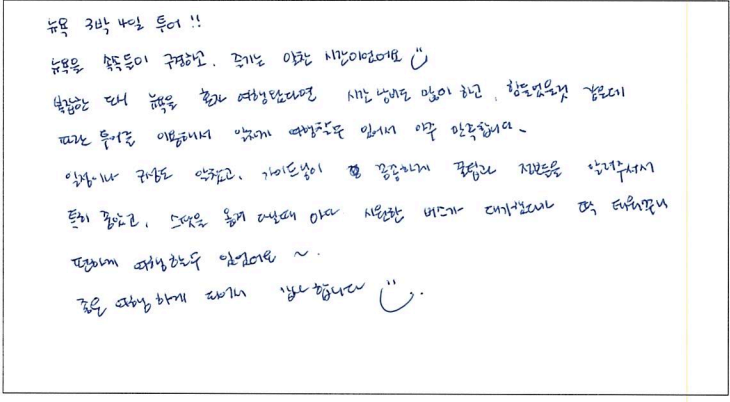 뉴욕 3박 4일 투어!!
뉴욕을 속속들이 구경하고, 즐기는 알찬 시간이었어요
복잡한 도시 뉴욕을 혼자 여행했다면 시간 낭비도 많이 하고, 힘들었을것 같은데
투어를 이용해서 알차게 여행할수 있어서 아주 만족합니다.
일정이나 구성도 알찼고, 가이드님이 꼼꼼하게 꿀팁과 정보들을 알려주셔서
특히 좋았고, 스팟을 옮겨 다닐때 마다 시원한 버스가 대기했다가 딱 태워주니
편하게 여행할수 있었어요 ~.
좋은 여행 하게 되어서 감사합니다